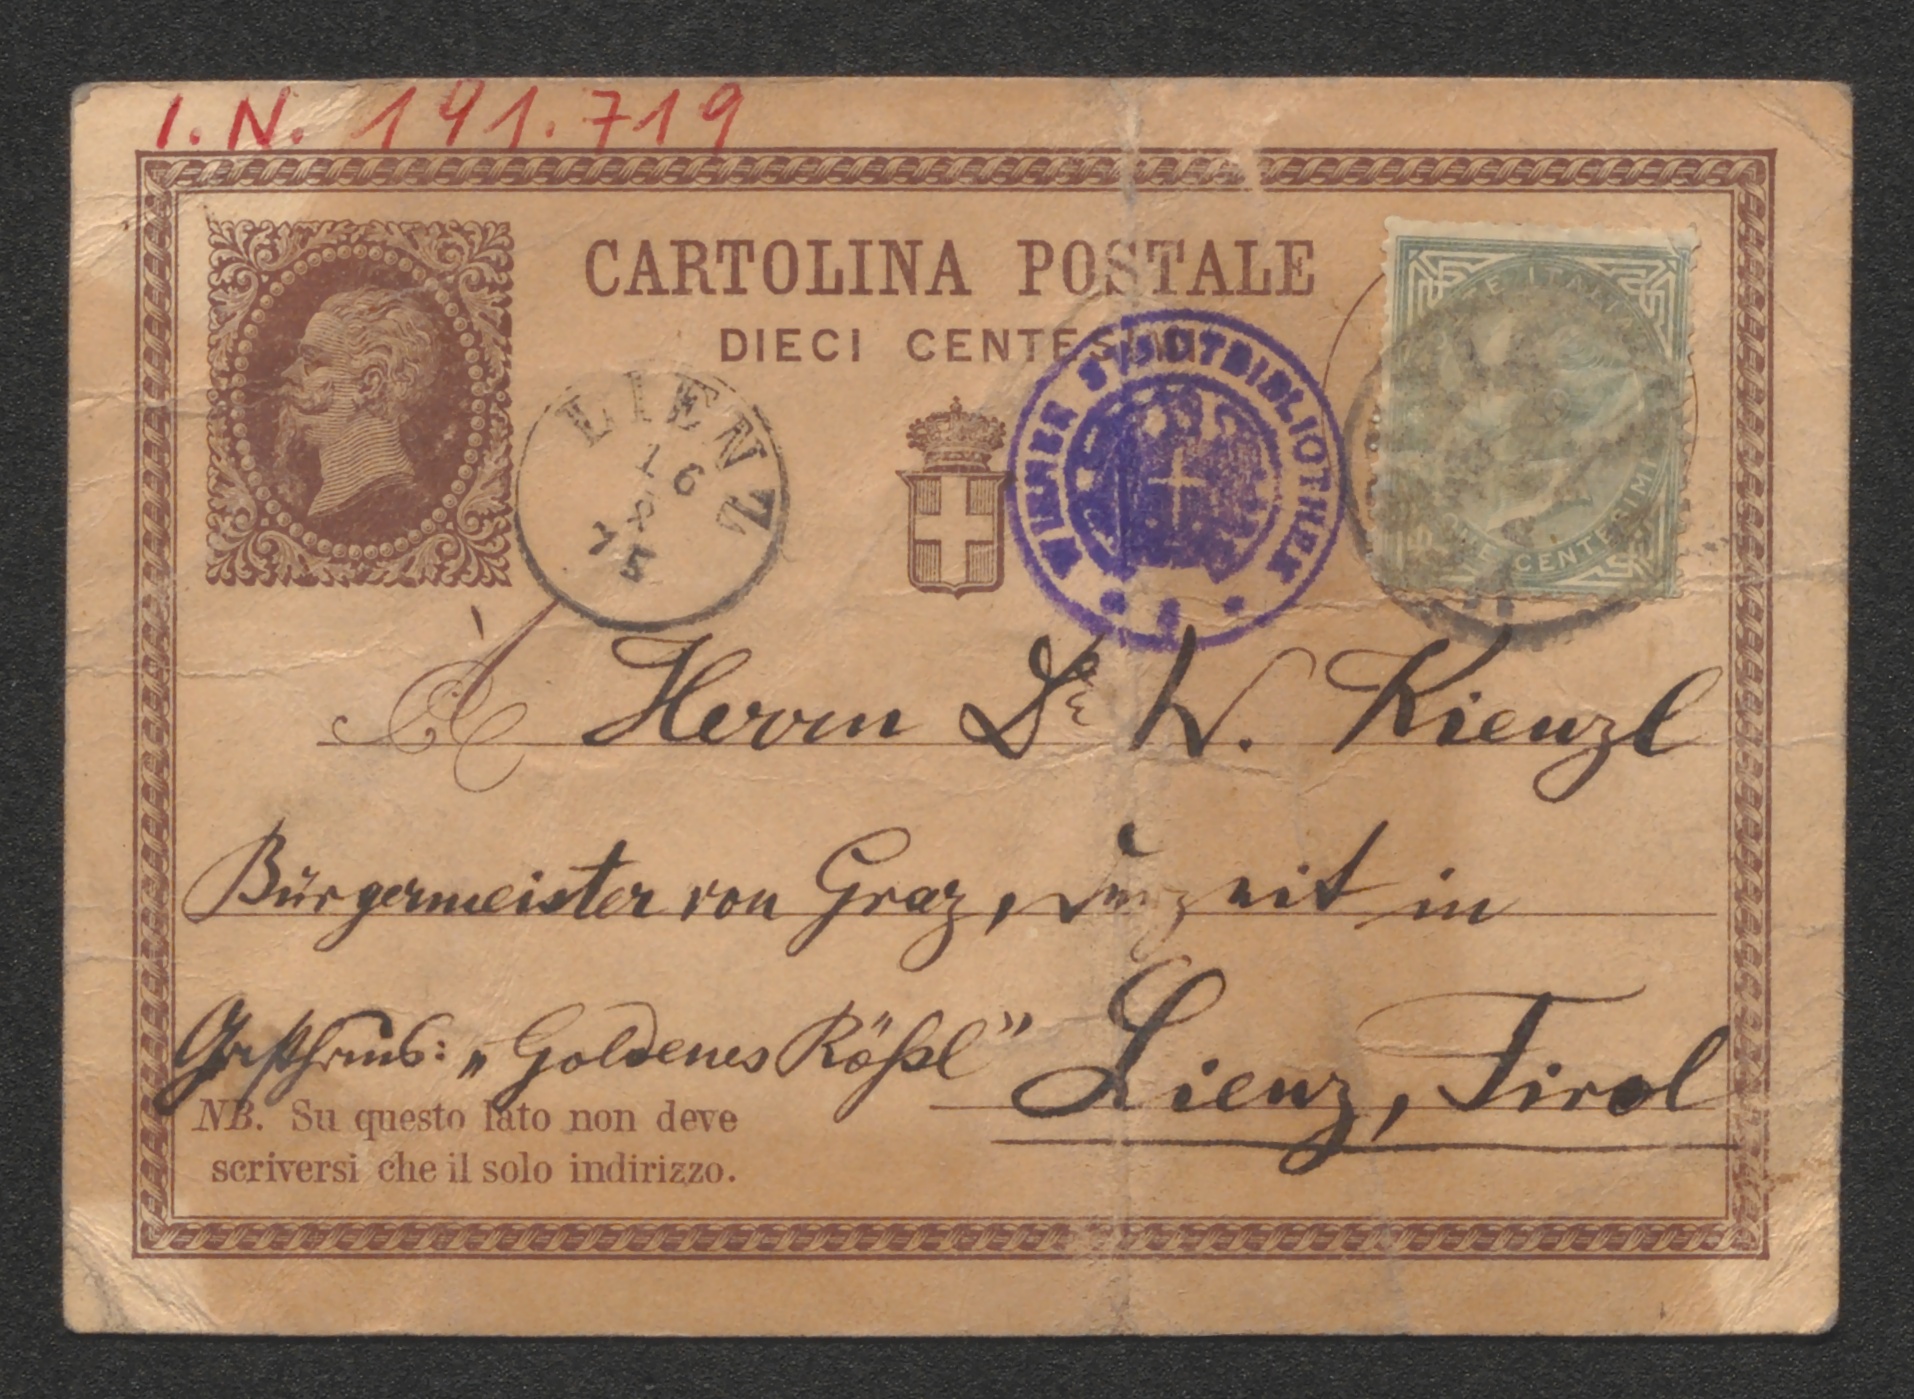 I.N. 191.719
CARTOLINA POSTALE
DIECI CENTESIMI
LIENZ
16
8
75
WIENER STADTBIBLIOTHEK
POSTE ITALIANE
CENTESIMI
A Herrn Dr W. Kienzl
Bürgermeister von Graz, Derzeit in
Gasthaus: „Goldenes Rößl”
Lienz, Tirol
NB. Su questo lato non deve
scriversi che il solo indirizzo.